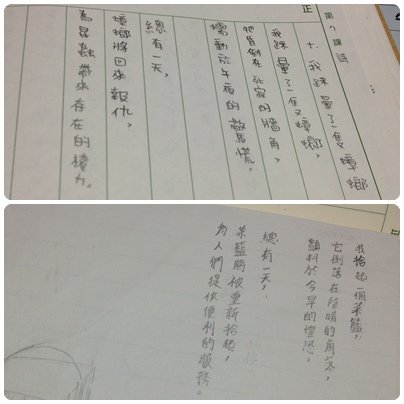 第7課 詩
正
十、我踩暈了一隻蟑螂
我踩暈了一隻蟑螂，
牠昏倒在死寂的牆角，
蠕動於午夜的驚慌。
總有一天，
蟑螂將回來報仇，
為昆蟲帶來存在的權力。
我拾起一個菜籃，
它倒落在陰暗的角落，
顫抖於今早的惶恐。
總有一天，
菜籃將被重新拾起，
為人們提供便利的服務。